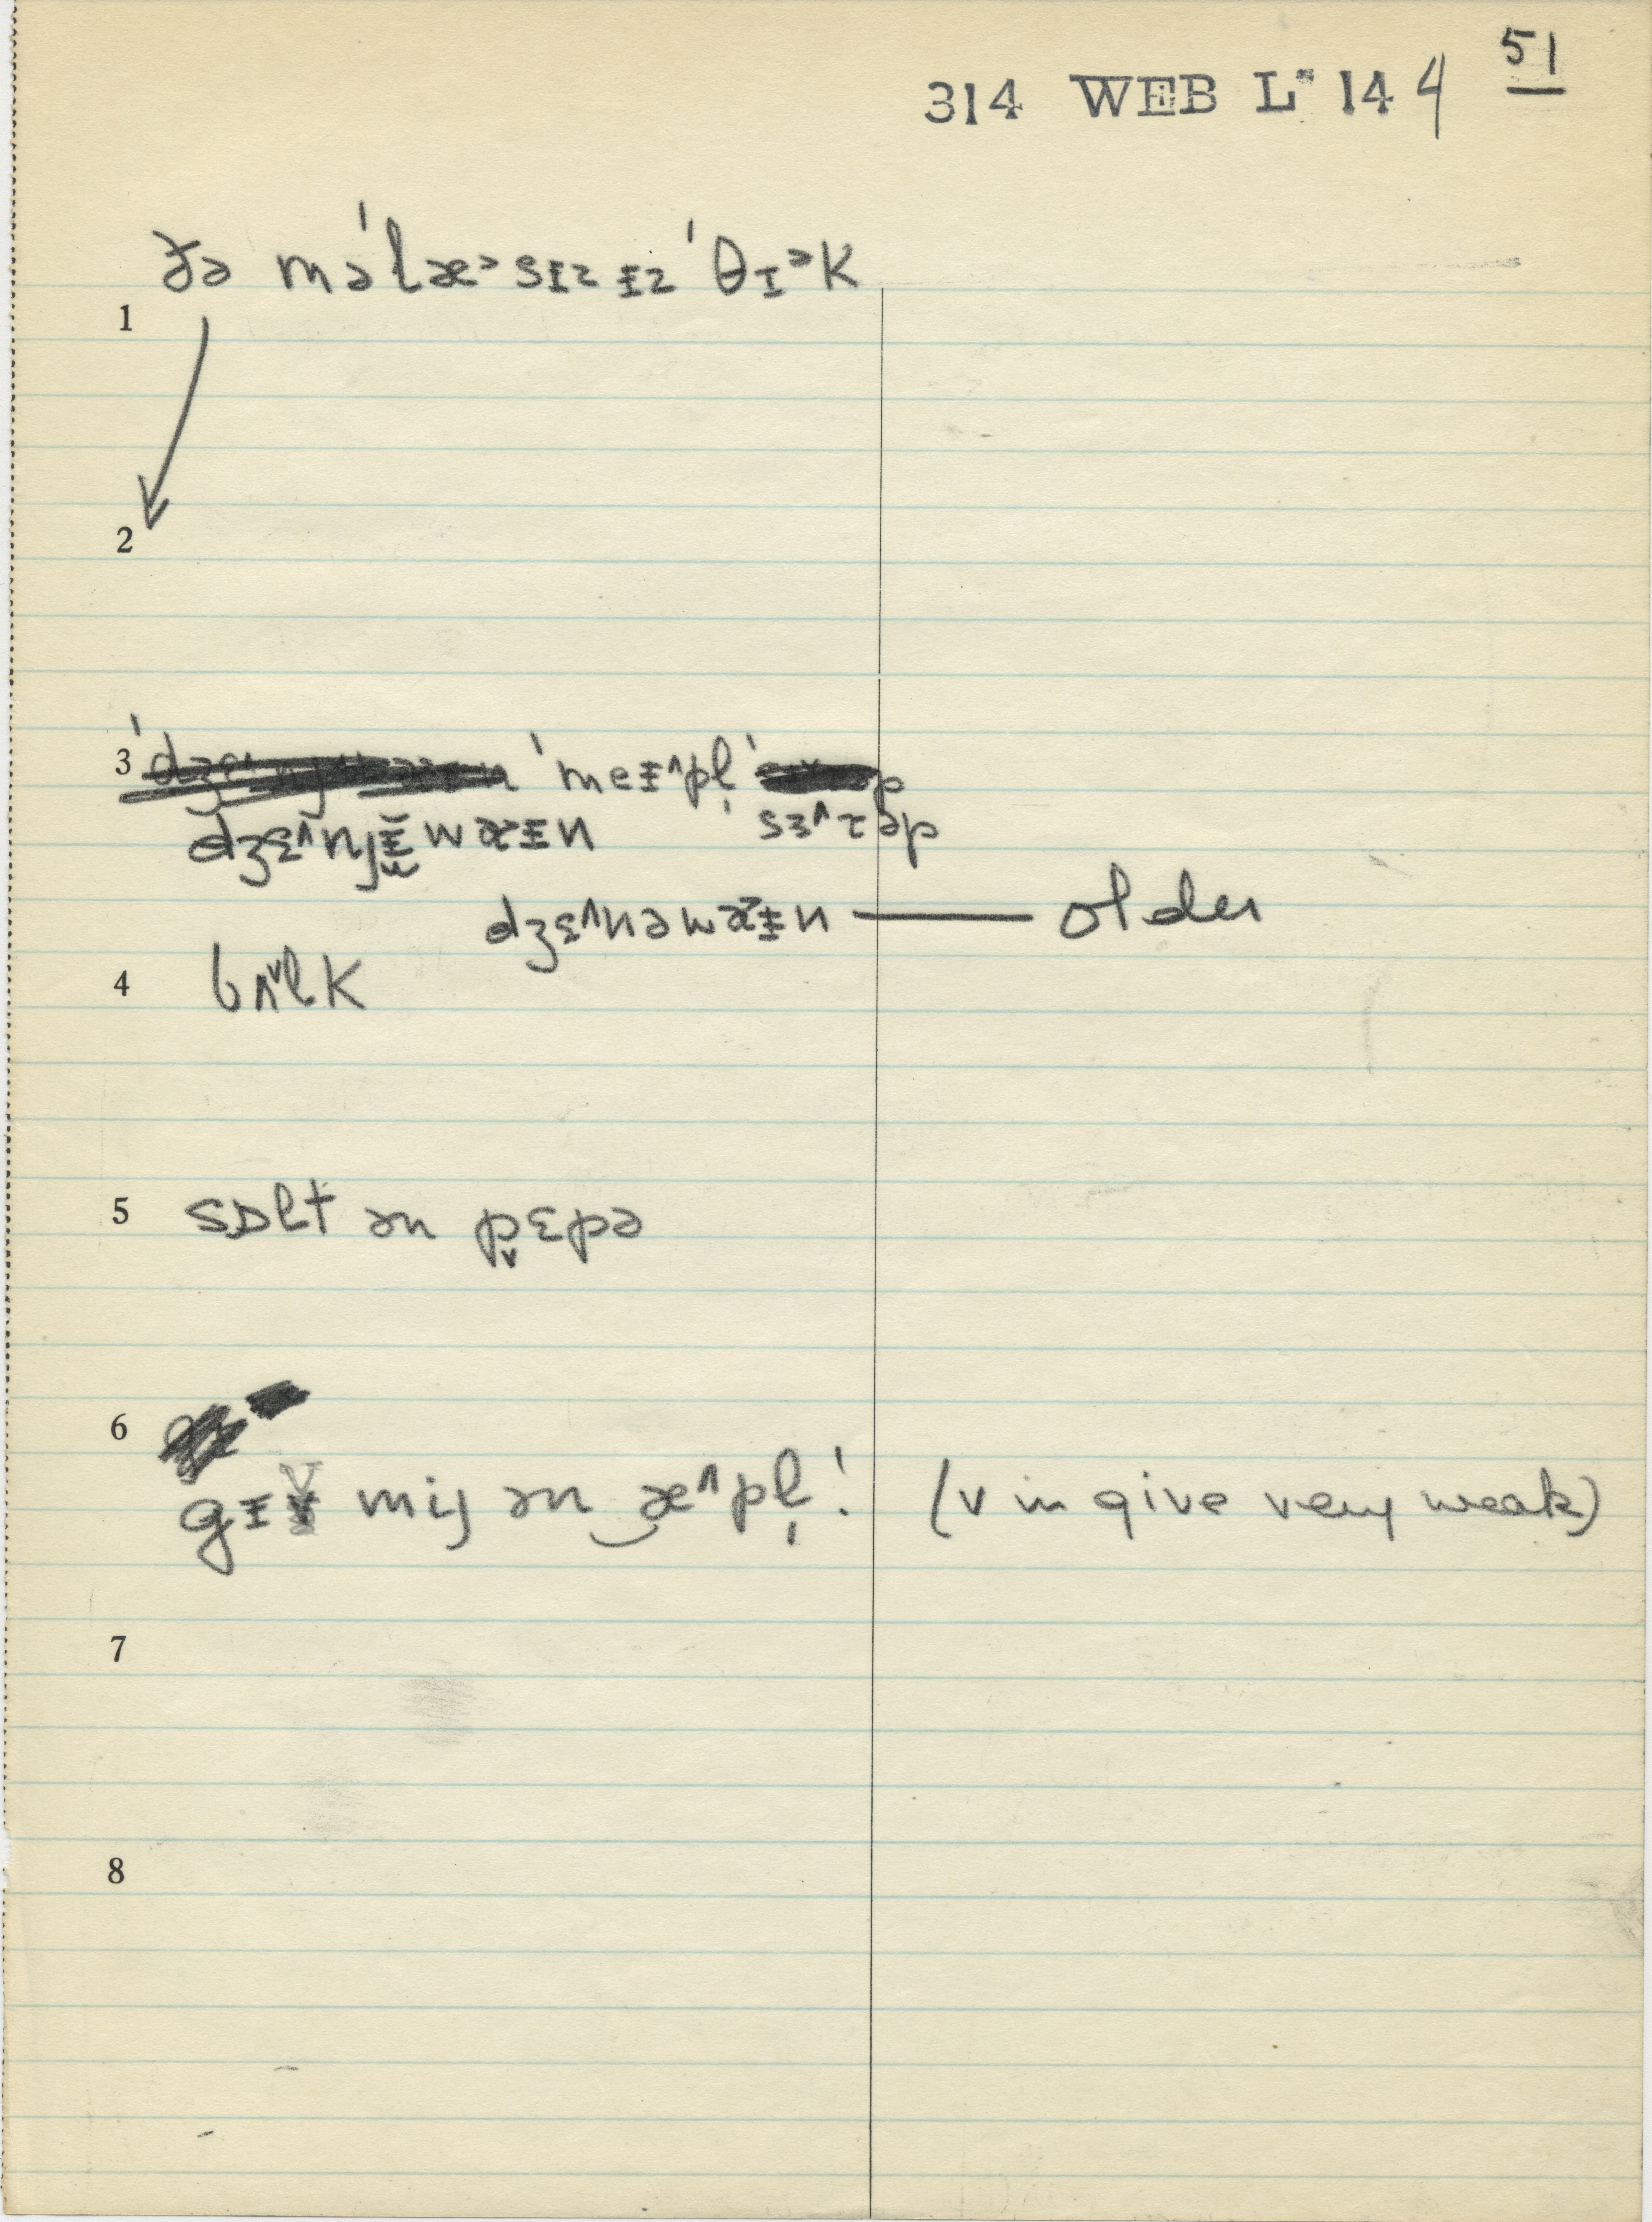 51
314 WEB L* 144
ðə məˈlæ˃sɪz ɪz ˈθɪ˃k
1
2
3 ˈmeɪ^pl̩
dʒɛ^njɪ̆wæɪn sɜ^ɾəp
dʒɛ^nəwæ˃ɪn — older
4 bʌ˅lk
5 sɒlt ən p̬ɛpə
6
gɪv mij ən‿æ^pl̩! (v in give very weak)
7
8